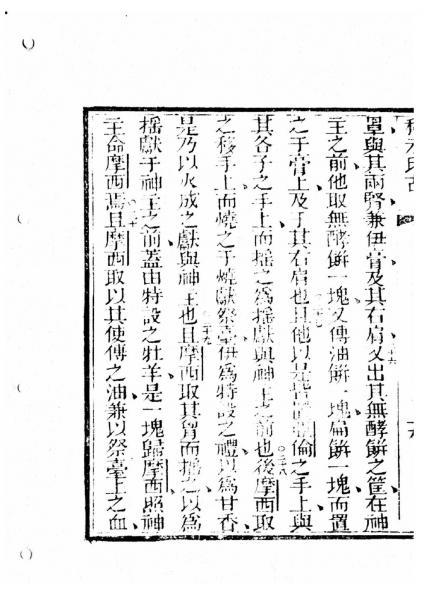 罩與其兩腎兼伊膏及其右肩又出其無酵餅之筐在神
主之前他取無酵餅一塊又傳油餅一塊扁餅一塊而置
之于膏上及于其右肩也且他以是皆置倫之手上與
其各子之手上而搖之為搖獻與神主之前也後摩西取
之移手上而燒之于燒獻祭臺伊為特設之禮以為甘香
是乃以火成之獻與神主也且摩西取其胷而搖之以為
搖獻于神主之前蓋由特設之牡羊是一塊歸摩西照神
主命摩西焉且摩西取以其使傅之油兼以祭臺上之血